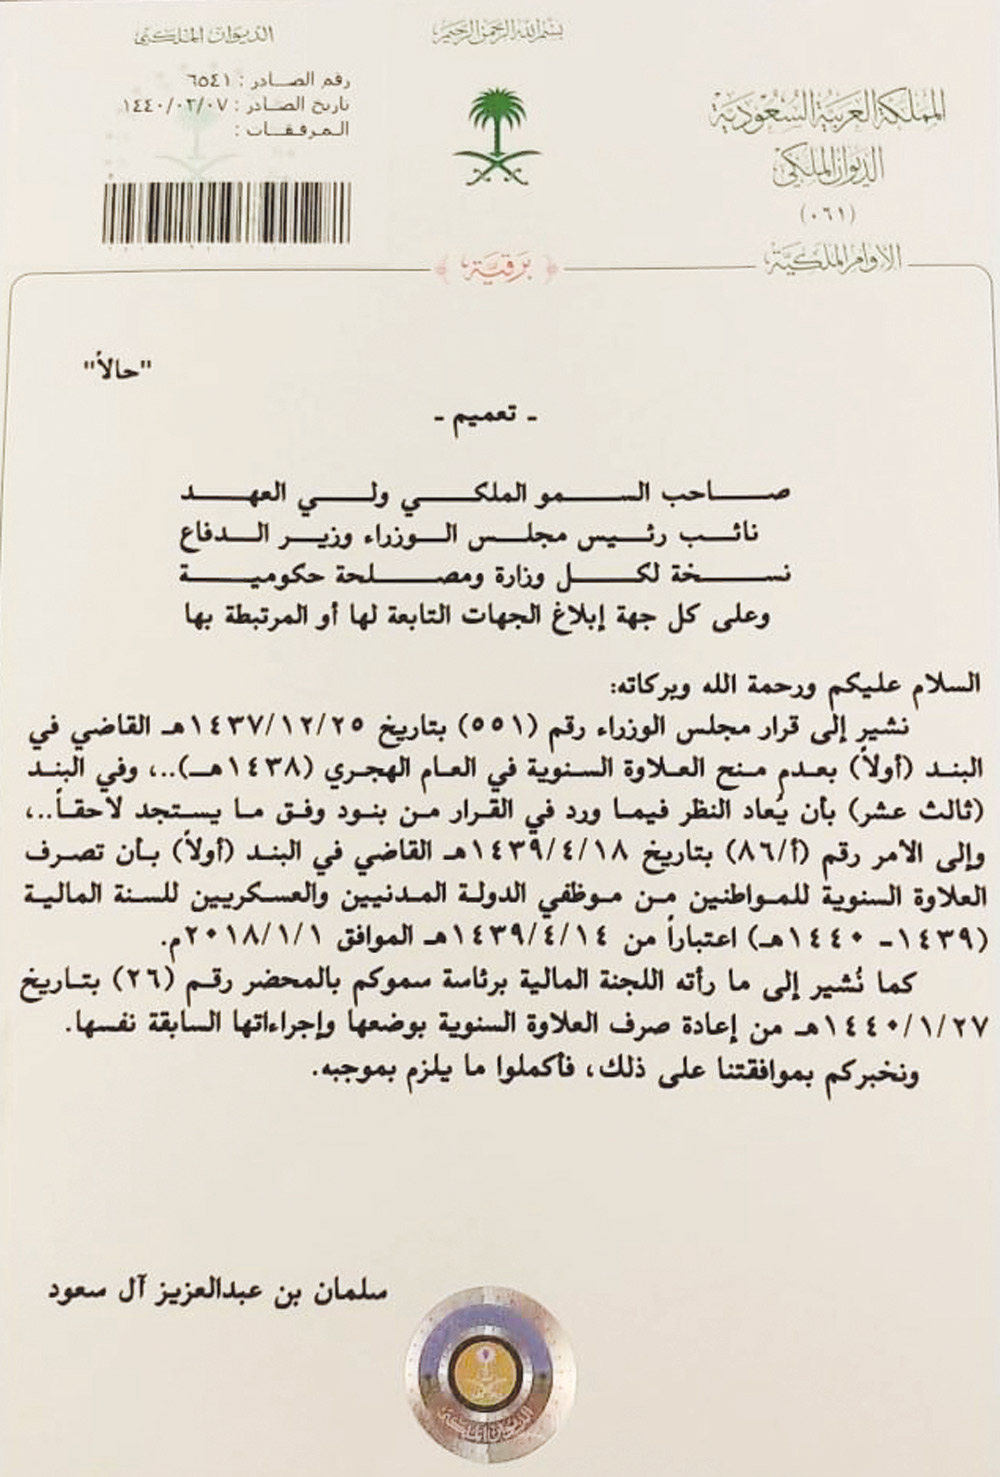 بسم الله الرحمن الرحيم
المملكة العربية السعودية
الديوان الملكي
(٠٦١)
الأوامر الملكية
الديوان الملكي
رقم الصادر : ٦٥٤١
تاريخ الصادر : ١٤٤٠/٠٢/٠٧
المرفقات :
برقية
"حالاً"
- تعميم -
صاحب السمو الملكي ولي العهد
نائب رئيس مجلس الوزراء وزير الدفاع
نسخة لكل وزارة ومصلحة حكومية
وعلى كل جهة إبلاغ الجهات التابعة لها أو المرتبطة بها
السلام عليكم ورحمة الله وبركاته:
نشير إلى قرار مجلس الوزراء رقم (٥٥١) بتاريخ ١٤٣٧/١٢/٢٥هـ القاضي في
البند (أولاً) بعدم منح العلاوة السنوية في العام الهجري (١٤٣٨هـ)..، وفي البند
(ثالث عشر) بأن يُعاد النظر فيما ورد في القرار من بنود وفق ما يستجد لاحقاً..،
وإلى الأمر رقم (أ/٨٦) بتاريخ ١٤٣٩/٤/١٨هـ القاضي في البند (أولاً) بأن تصرف
العلاوة السنوية للمواطنين من موظفي الدولة المدنيين والعسكريين للسنة المالية
(١٤٣٩- ١٤٤٠هـ) اعتباراً من ١٤٣٩/٤/١٤هـ الموافق ٢٠١٨/١/١م.
كما نُشير إلى ما رأته اللجنة المالية برئاسة سموكم بالمحضر رقم (٢٦) بتاريخ
١٤٤٠/١/٢٧هـ من إعادة صرف العلاوة السنوية بوضعها وإجراءاتها السابقة نفسها.
ونخبركم بموافقتنا على ذلك، فأكملوا ما يلزم بموجبه.
سلمان بن عبدالعزيز آل سعود
الديوان الملكي